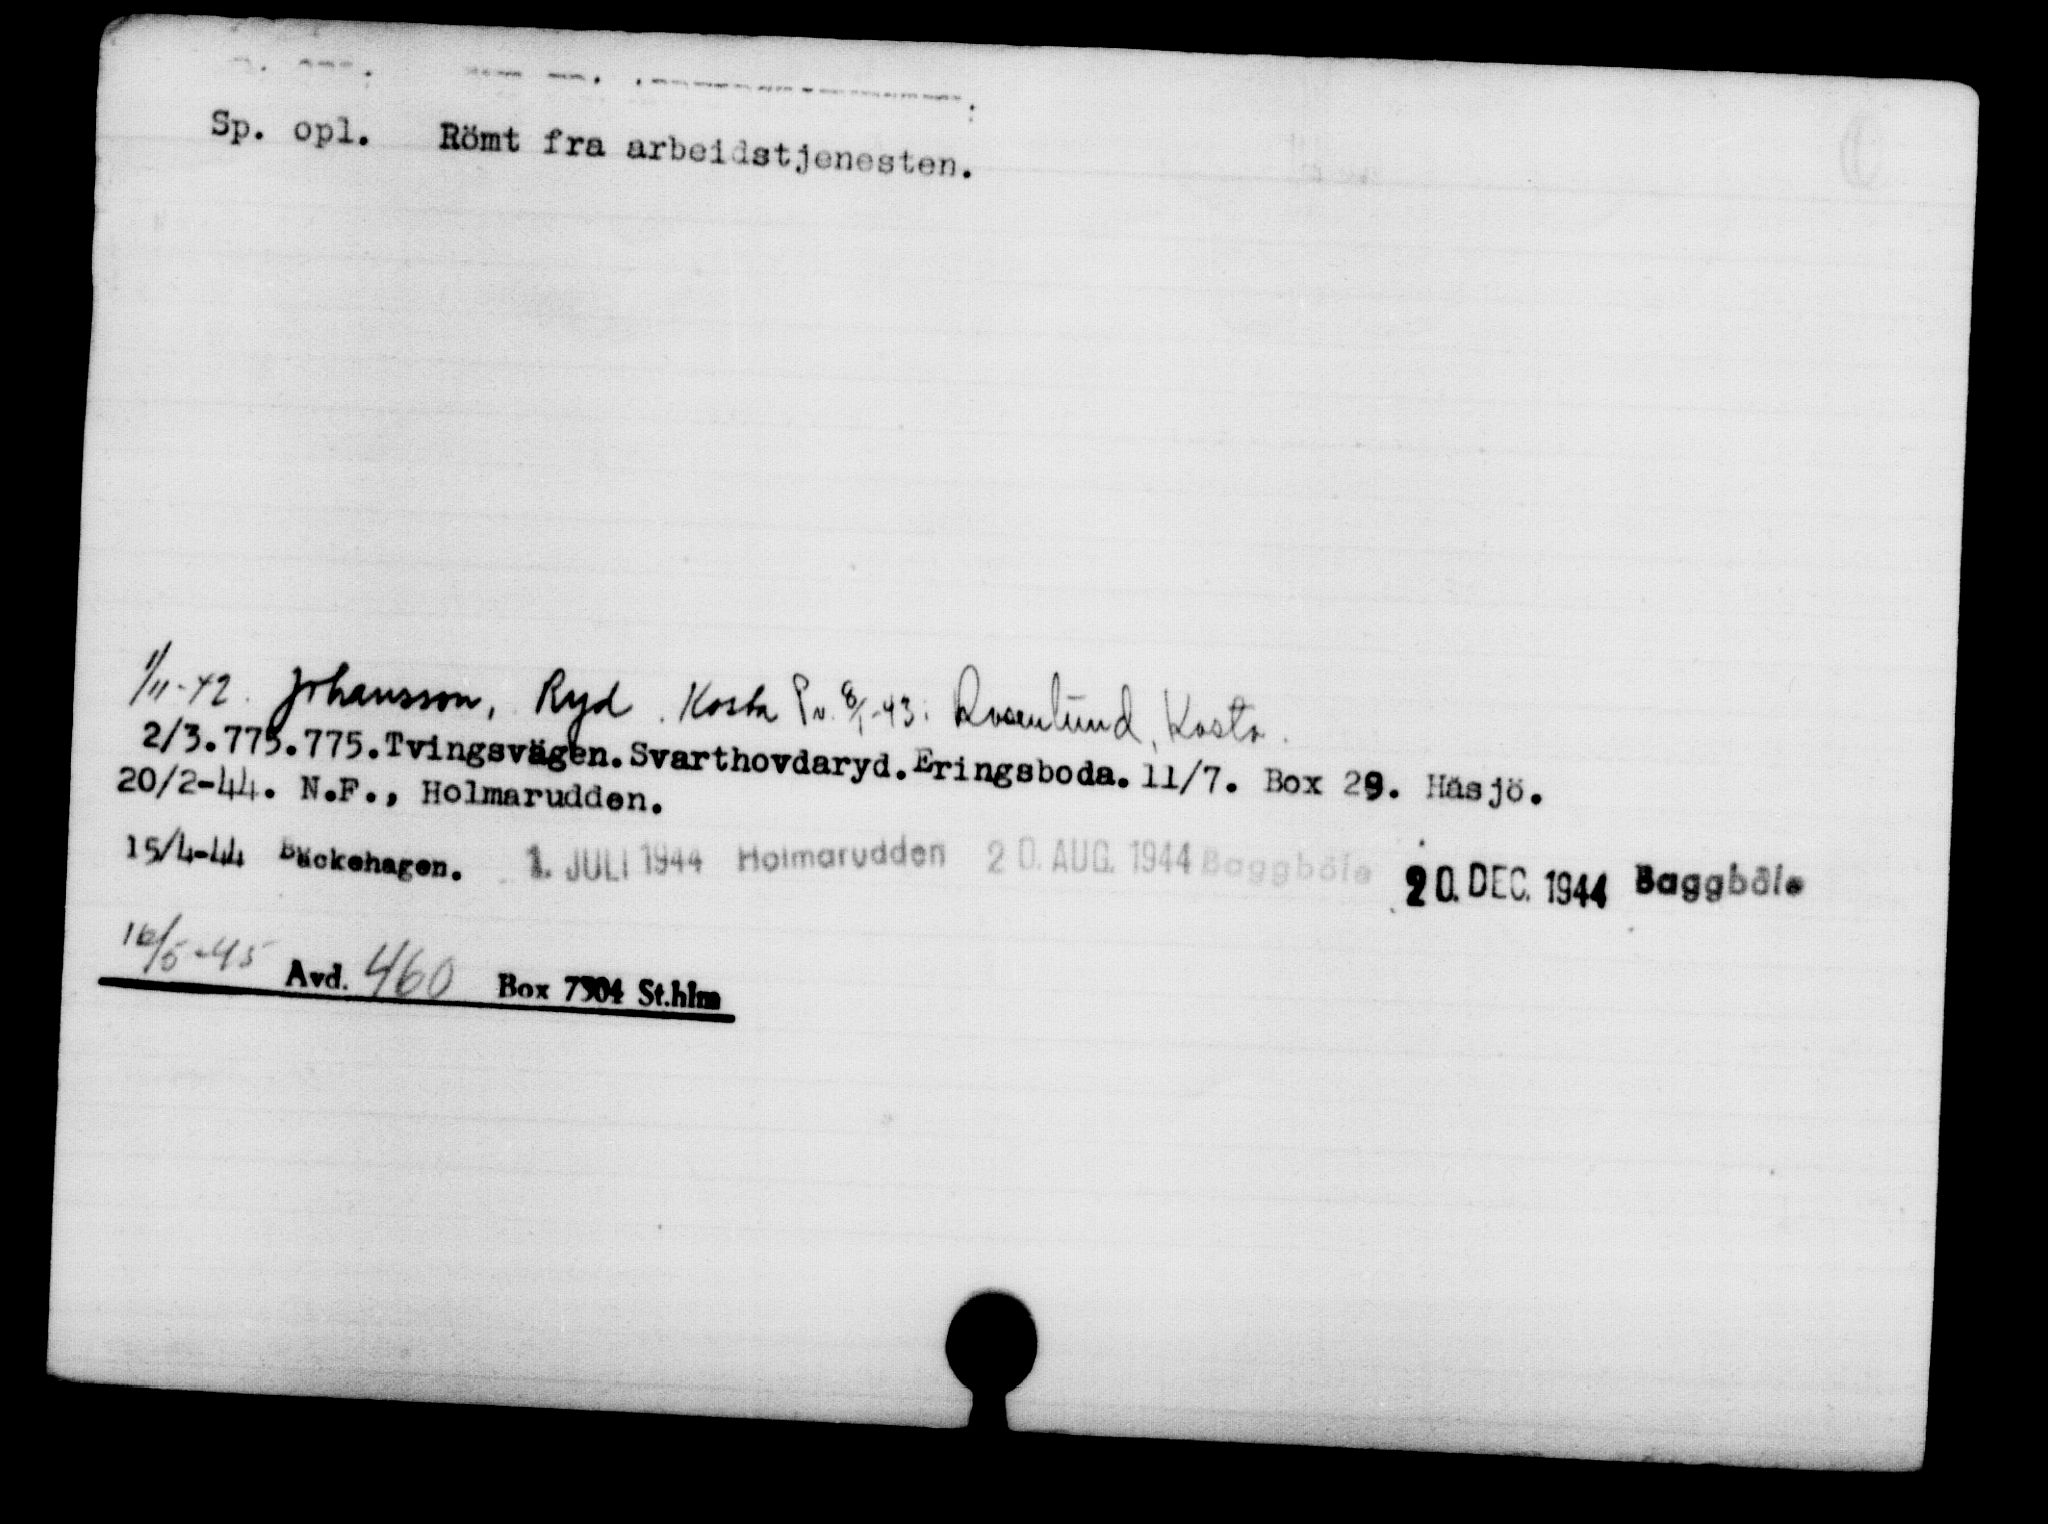 Sp. opl. Römt fra arbeidstjenesten.
1/11-42. Johansson, Ryd. Kosta Pv. 8/1-43: Rosenlund, Kosta.
2/3.775.775.Tvingsvägen.Svarthovdaryd.Eringsboda. 11/7. Box 29. Häsjö.
20/2-44. N.F., Holmarudden.
15/4-44 Bäckehagen. 1. JULI 1944 Holmarudden 20. AUG. 1944 Baggböle 20. DEC. 1944 Baggböle
16/5-45 Avd. 460 Box 7304 St.hlm